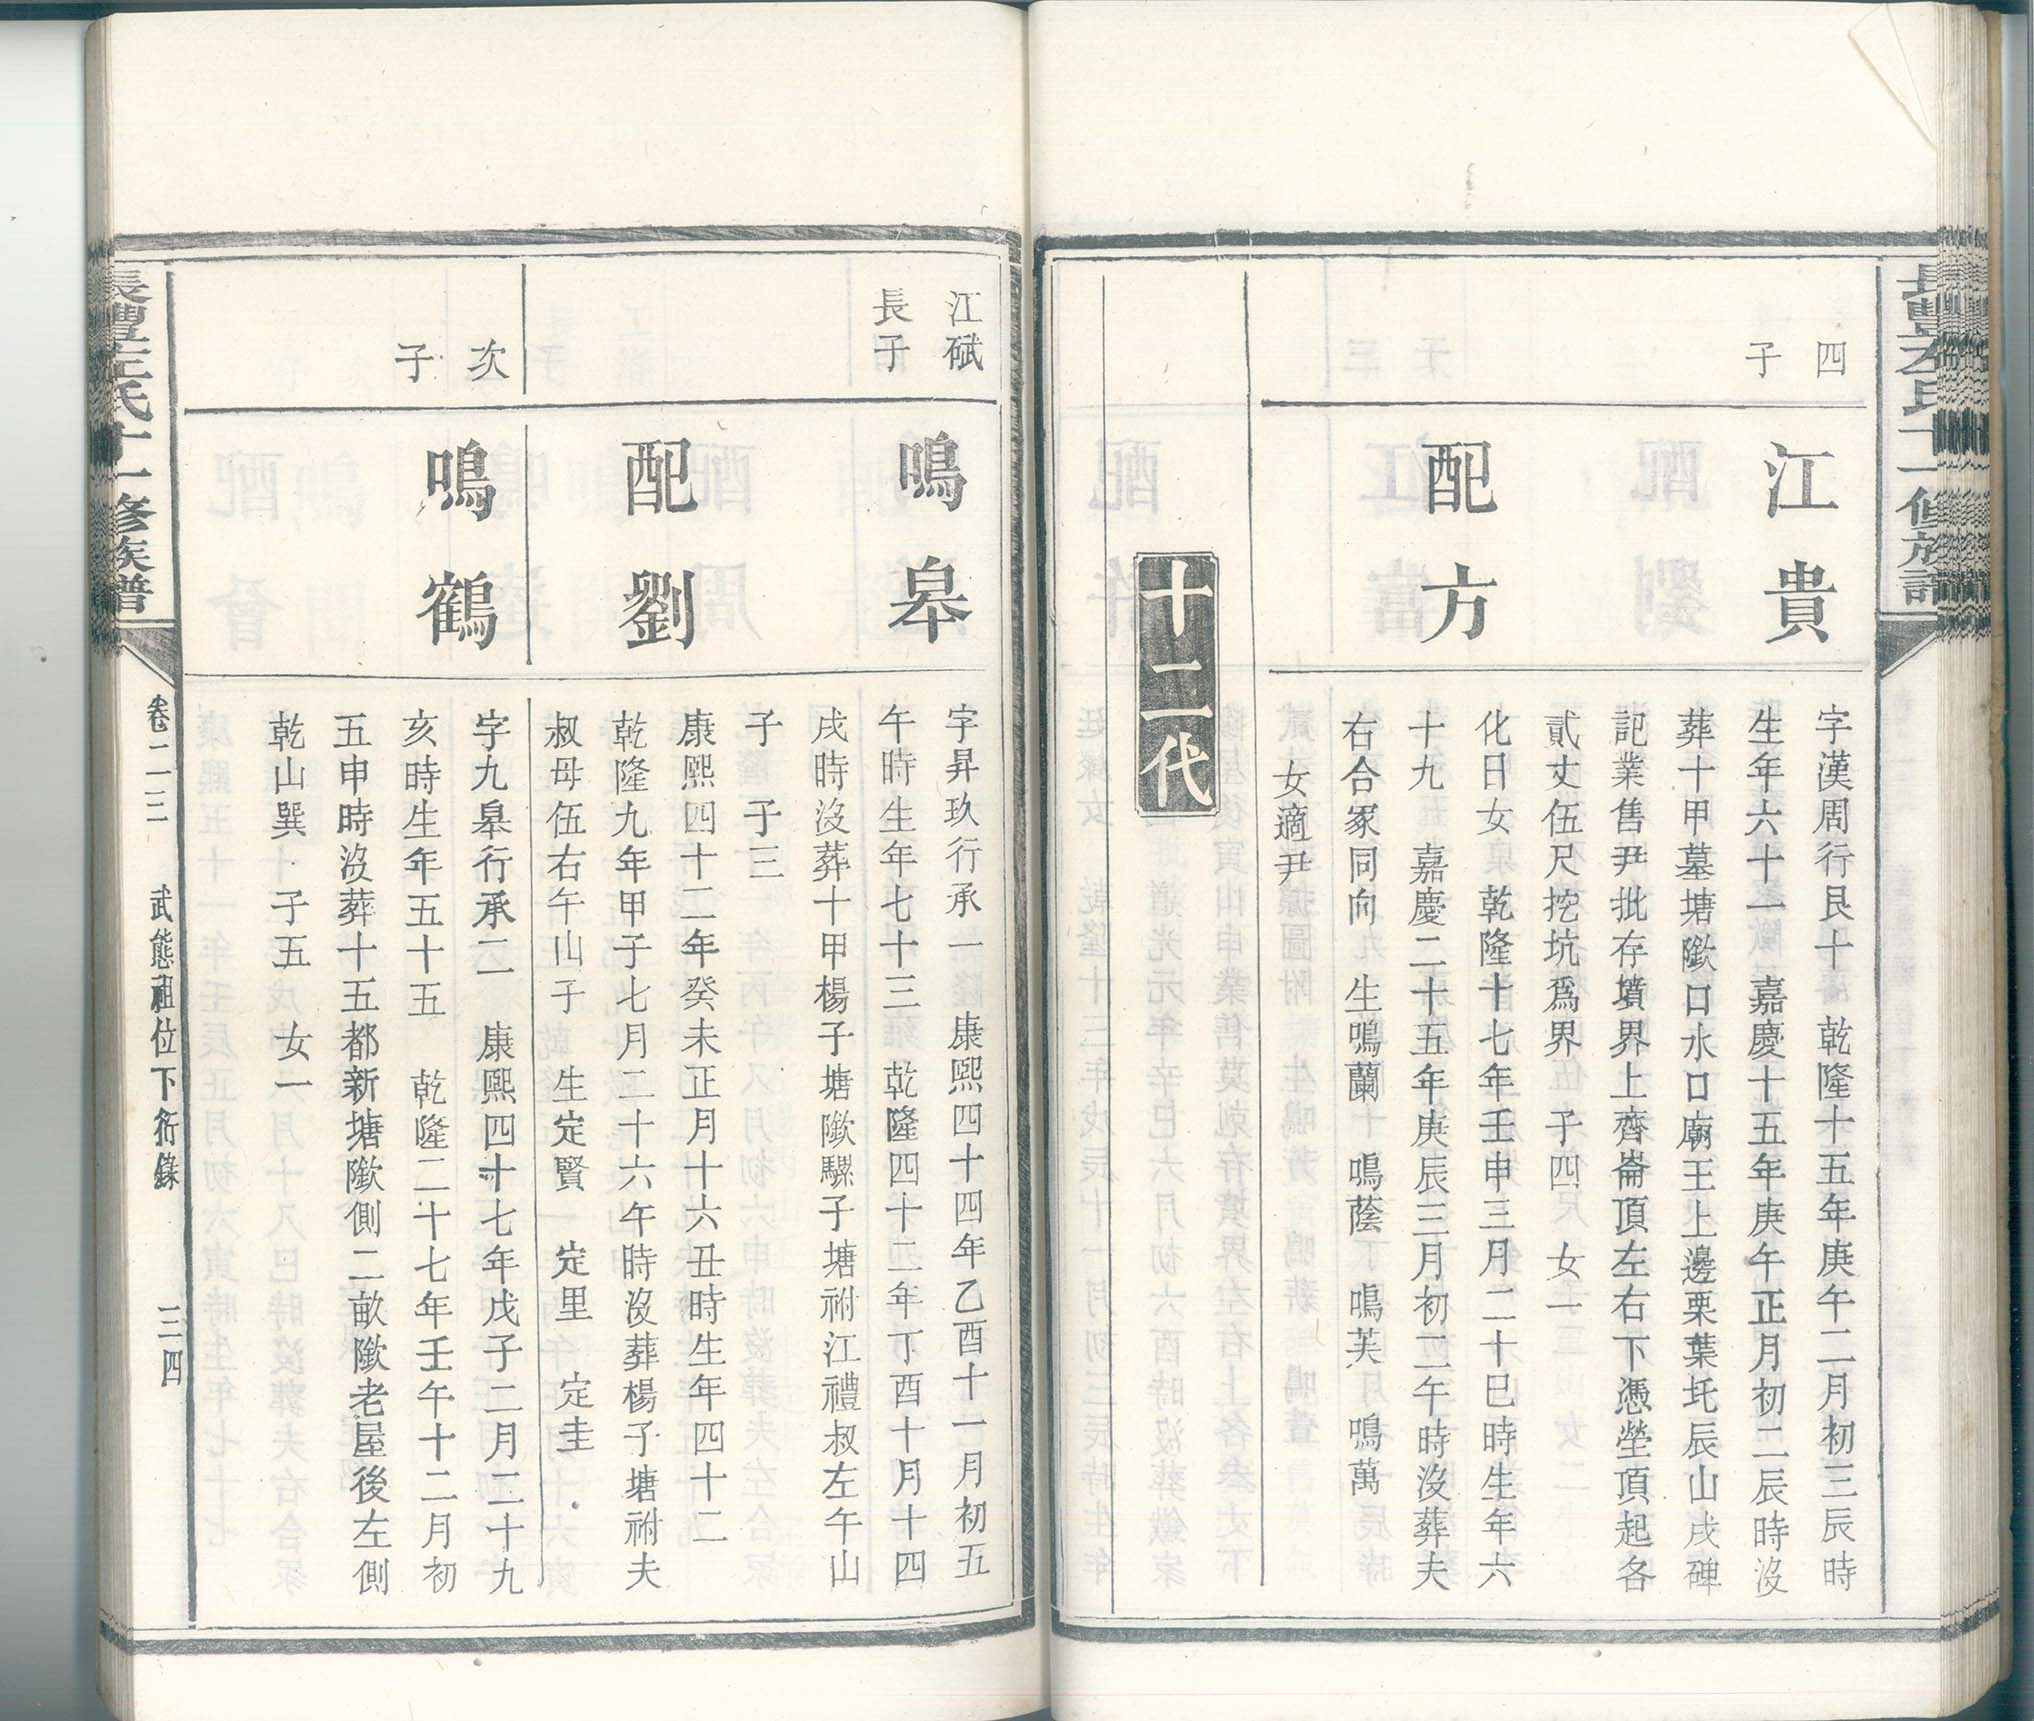 長豐左氏十一修族譜
四
子
江貴
字漢周行艮十　乾隆十五年庚午二月初三辰時
生年六十一　嘉慶十五年庚午正月初二辰時沒
葬十甲墓塘歘口水口廟王上邊栗葉圫辰山戌碑
記業售尹批存墳界上齊崙頂左右下憑塋頂起各
貳丈伍尺挖坑爲界　子四　女一
配方
化日女　乾隆十七年壬申三月二十巳時生年六
十九　嘉慶二十五年庚辰三月初二午時沒葬夫
右合冢同向　生鳴蘭　鳴蔭　鳴芙　鳴萬
女適尹
十二代
江斌
長子
鳴皋
字昇玖行承一　康熙四十四年乙酉十一月初五
午時生年七十三　乾隆四十二年丁酉十月十四
戌時沒葬十甲楊子塘歘騾子塘祔江禮叔左午山
子　子三
配劉
康熙四十二年癸未正月十六丑時生年四十二
乾隆九年甲子七月二十六午時沒葬楊子塘祔夫
叔母伍右午山子　生定賢　定里　定圭
次
子
鳴鶴
字九皋行承二　康熙四十七年戊子二月二十九
亥時生年五十五　乾隆二十七年壬午十二月初
五申時沒葬十五都新塘歘側二畝歘老屋後左側
乾山巽　子五　女一
長豐左氏十一修族譜
卷二三　武態祖位下衍錄　三四